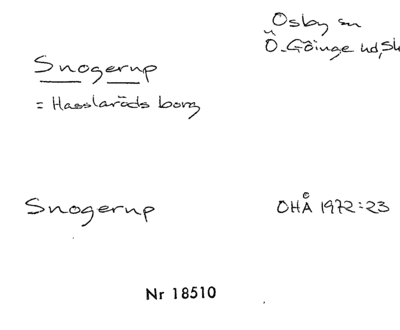 Osby sn
Ö. Göinge hd, Sk
Snogerup
= Hasslaröds borg
Snogerup
OHÅ 1972:23
Nr 18510